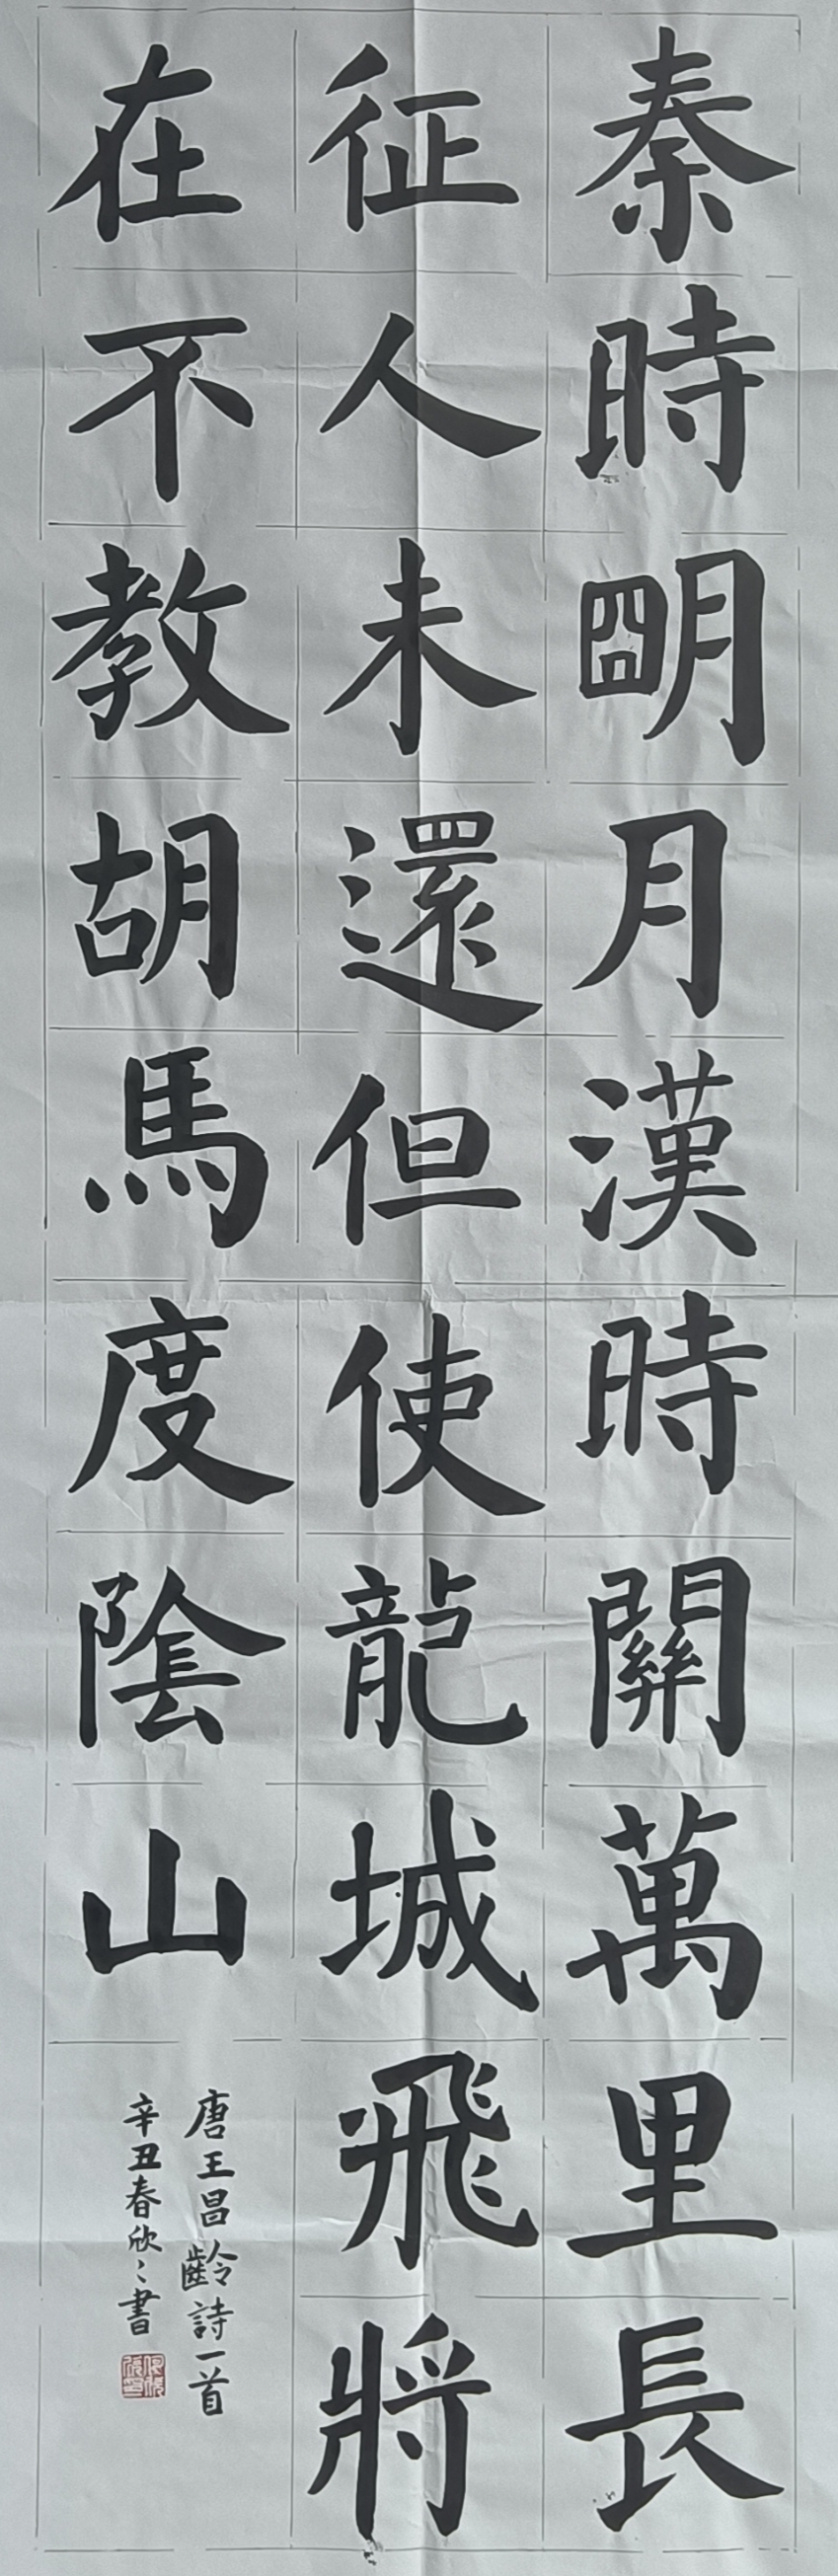 秦時朙月漢時關萬里長
征人未還但使龍城飛將
在不教胡馬度陰山
唐王昌齡詩一首
辛丑春欣〻書